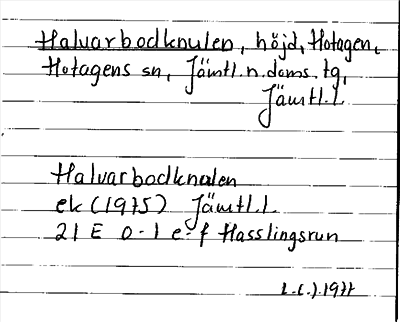 Halvarbodknulen, höjd, Hotagen,
Hotagens sn, Jämtl. n. doms. tg,
Jämtl. l.
Halvarbodknulen
ek (1975) Jämtl. l.
21 E 0-1 e-f Hasslingsrun
1977